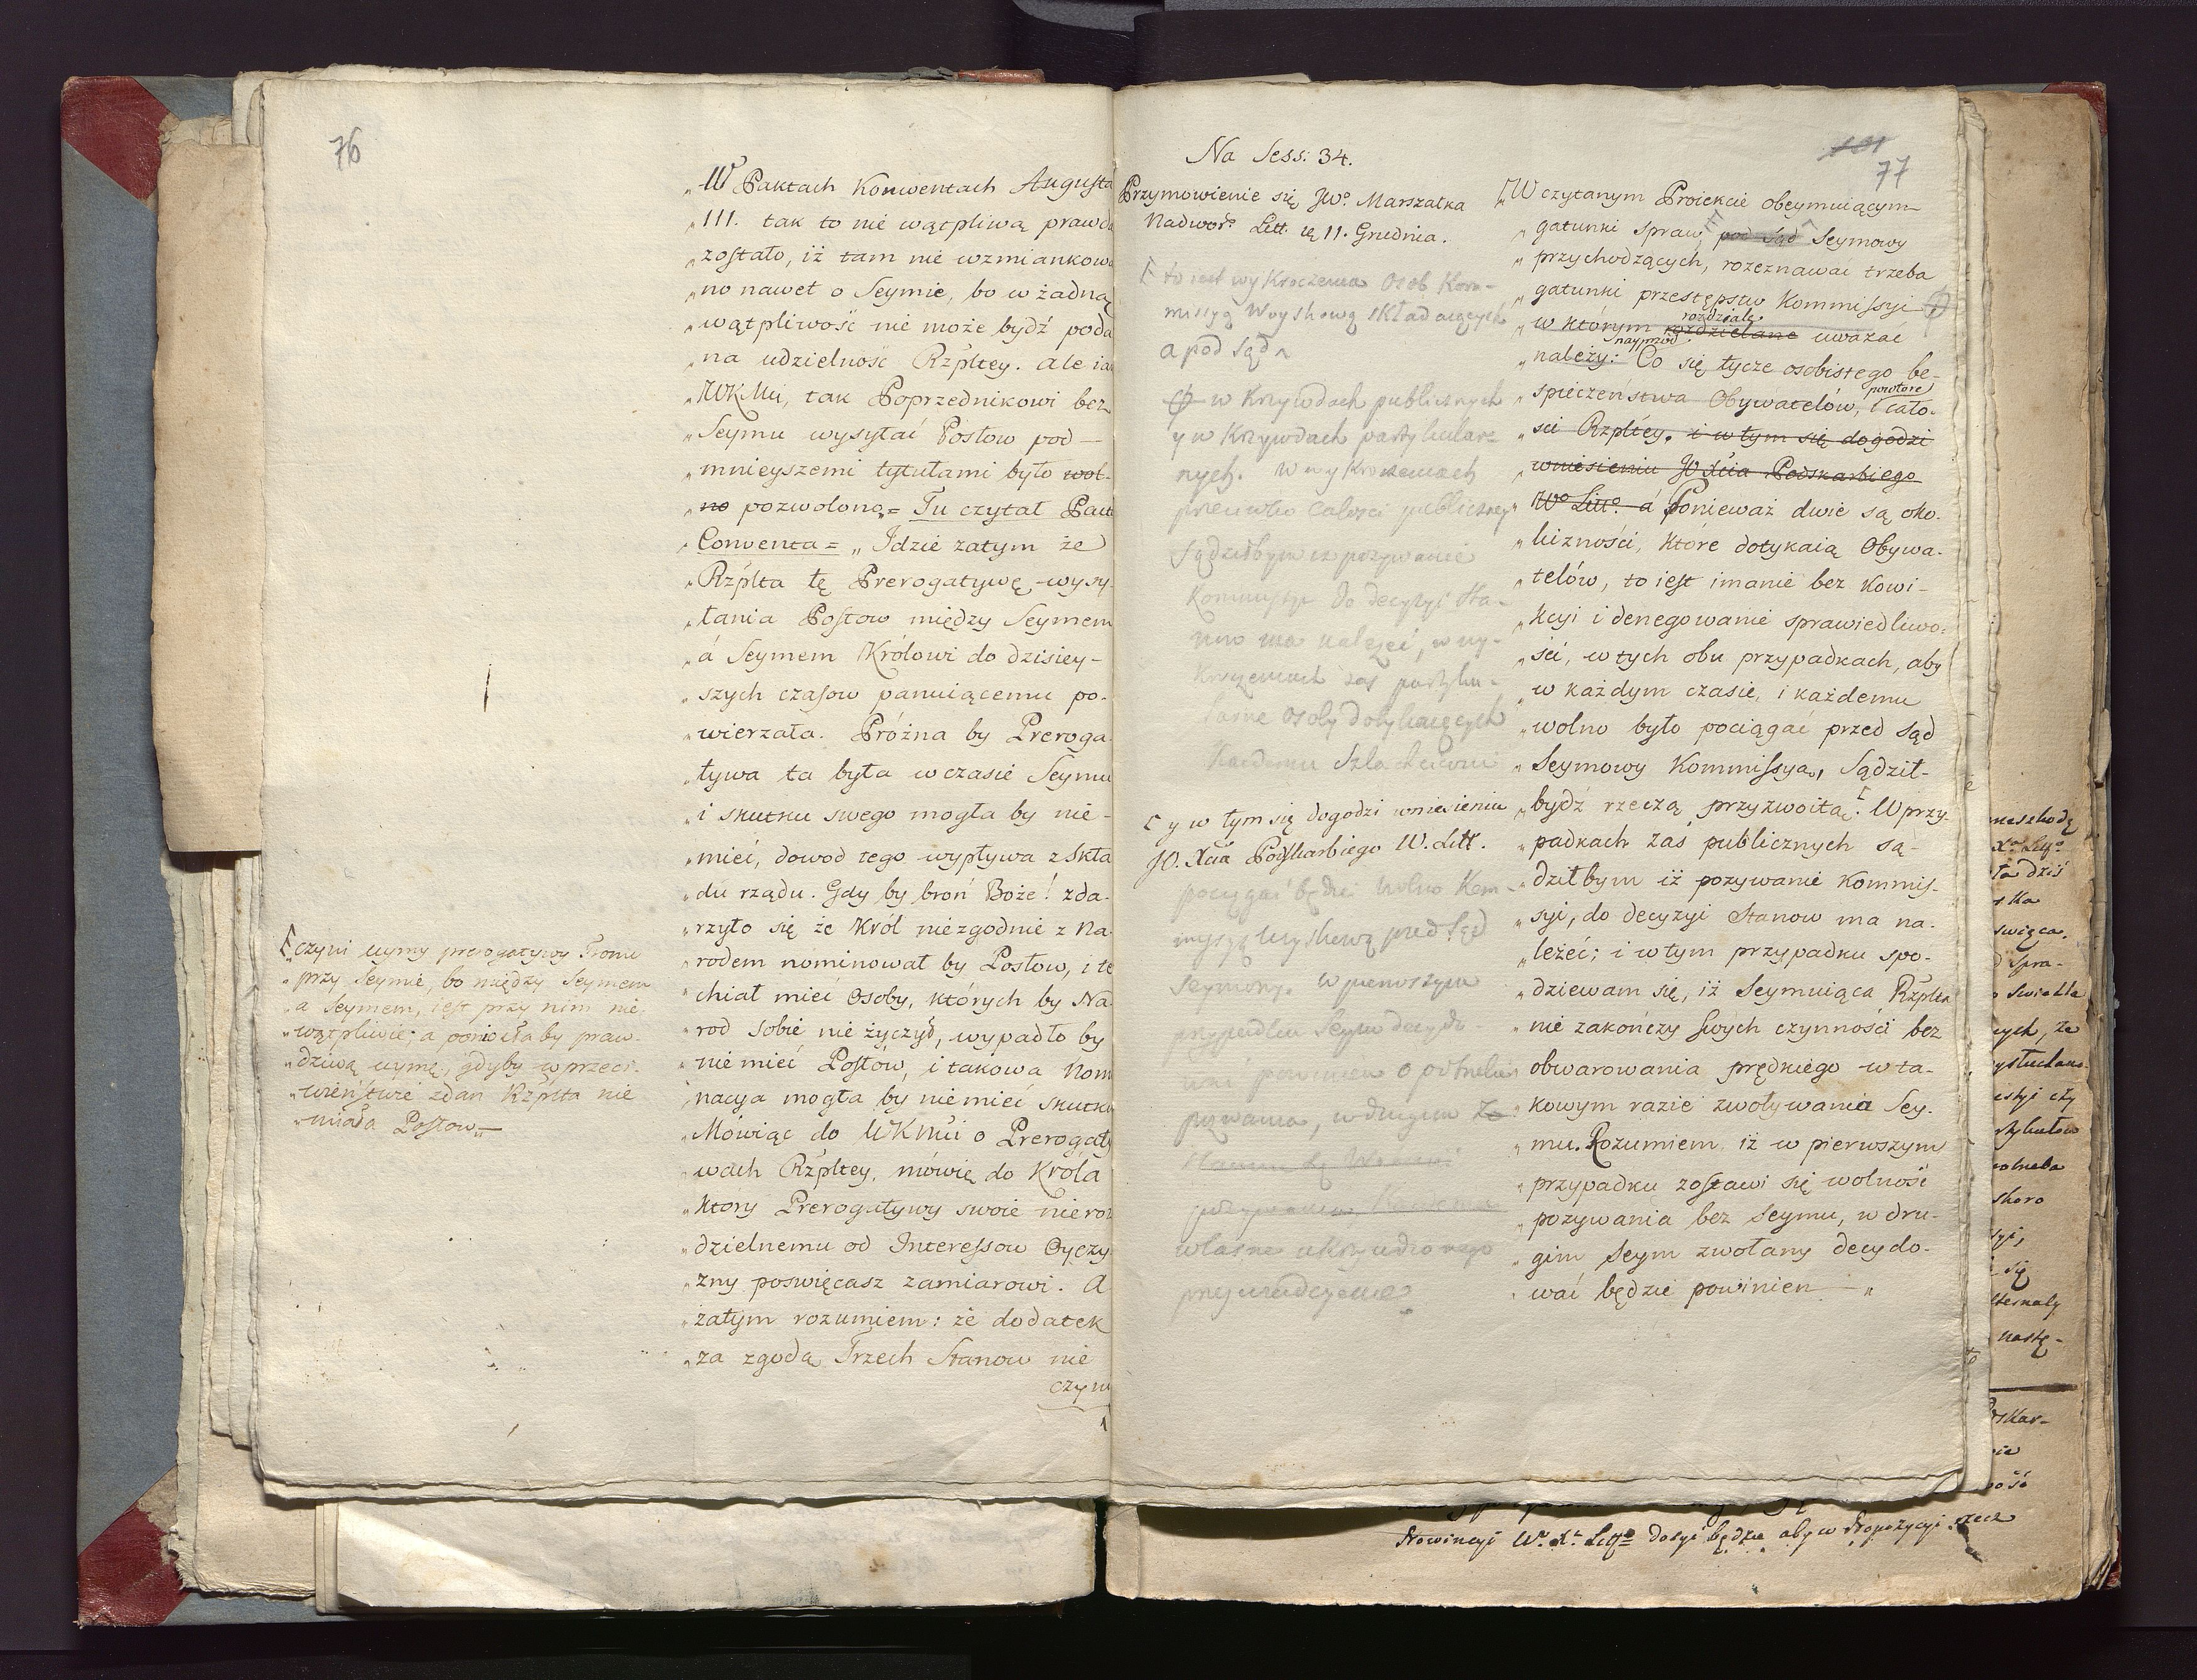 76
„W Paktach Konwentach Augusta
„III. tak to nie wątpliwą prawdą
„zostało, iż tam nie wzmiankowa
„no nawet o Seymie, bo w żadną
„wątpliwość nie może bydź poda
„na udzielność Rzpltey. ale
„WKMci, tak Poprzednikowi bez
„Seymu wysyłać Posłow pod—
„mnieyszemi tytułami było wol-
„no pozwolono= Tu czytał Pacta
„Conventa= „Idzie zatym że
„Rzplta tę Prerogatywę wysy-
„łania Posłow między Seymem
„á Seymem Królowi do dzisiey-
„szych czasow panuiącemu po-
„wierzała. Próżna by Preroga-
„tywa ta była w czasie Seymu
„i skutku swego mogła by nie-
„mieć, dowod tego wypływa z skła
„du rządu. Gdy by broń Boże! zda-
„rzyło się że Król niezgodnie z Na-
„rodem nominował by Posłow, i te
„chiał mieć Osoby, których by Na-
„rod sobie nie życzył, wypadło by
„nie mieć Posłow, i takowa Nom
„nacya mogła by nie mieć skutku
„Mówiąc do WKMci o Prerogaty
„wach Rzpltey, mówię do Króla
„ktory Prerogatywy swoie nieroz
„dzielnemu od Interessow Oyczy-
„zny poswięcasz zamiarowi. A
„zatym rozumiem: że dodatek
„za zgodą Trzech Stanow nie
czyni
„czyni uymy prerogatywy Tronu
„przy Seymie, bo między Seymem
„a Seymem, iest przy nim nie-
„wątpliwie; a poniosła by praw-
„dziwą uymę, gdyby w przeci-
„wieństwie zdań Rzplta nie
„miała Posłow—
Na Sess: 34.
77
Przymowienie się JWo. Marszałka
Nadwor. Litt. 11. Grudnia.
to iest wykroczenia Osob Kom-
missyą Woyskową składaiących
a pod sąd
w Krzywdach publicznych
y w Krzywdach partykular-
nych. W wykroczeniach
przeciwko Całosci publiczney
sądziłbym iż pozywanie
Kommissyi do decyzyi Sta-
now ma należeć, w wy-
kroczeniach zaś partyku-
larne osoby dotykaiących
każdemu Szlachcicowi
y w tym się dogodzi wniesieniu
JO. Xcia Podskarbiego W. Litt.
pociągać będzie wolno Kom-
missyą Woyskową przed Sąd
Seymowy. W pierwszym
przypadku Seym decydo-
wać powinien o
pozwania, w drugim
własne ukrzywdzonego
przeswiadczenie
„W czytanym Proiekcie obeymuiącym
„gatunki spraw, pod sąd Seymowy
„przychodzących, rozeznawać trzeba
„gatunki przestępstw Kommissyi
„w którym rozdzielane rozdziale uważać
„należy: nayprzód Co się tycze osobistego be-
„spieczeństwa Obywatelów, powtore i cało-
„sci Rzpltey. i w tym się dogodzi
„wniesieniu JO Xcia Podskarbiego
„Wo Litto. á Ponieważ dwie są oko-
„liczności, które dotykaią Obywa-
„telów, to iest imanie bez Kowi-
„kcyi i denegowanie sprawiedliwo-
„ści, w tych obu przypadkach, aby
„w każdym czasie, i każdemu
„wolno było pociągać przed Sąd
„Seymowy Kommissyą, Sądził-
„bydź rzeczą przyzwoitą. W przy-
„padkach zaś publicznych są-
„dziłbym iż pozywanie Kommis-
„syi, do decyzyi Stanow ma na-
„leżeć; i w tym przypadku spo-
„dziewam się, iż Seymuiąca Rzplta
„nie zakończy swych czynności bez
„obwarowania prędkiego w ta-
„kowym razie zwoływania Sey-
„mu. Rozumiem iż w pierwszym
„przypadku zostawi się wolność
„pozywania bez Seymu, w dru-
„gim Seym zwołany decydo-
„wać będzie powinien —„
Prowincyi W. X. Litt dosyć będzie aby w Propozycyi rzecz